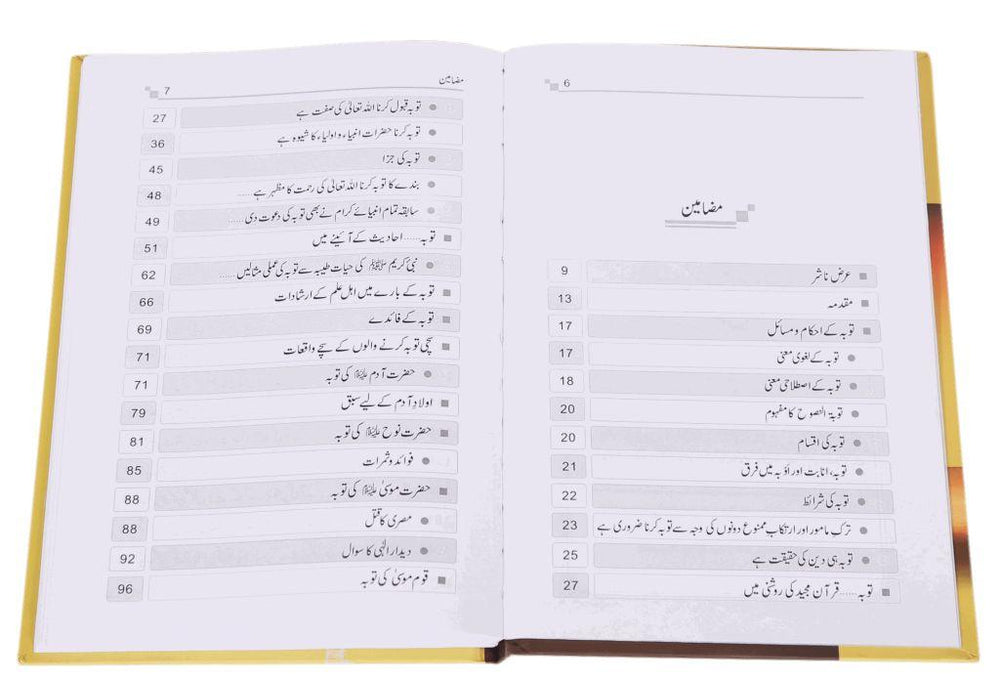 6
مضامین
عرض ناشر 9
مقدمہ 13
توبہ کے احکام و مسائل 17
توبہ کے لغوی معنی 17
توبہ کے اصطلاحی معنی 18
توبۃ النصوح کا مفہوم 20
توبہ کی اقسام 20
توبہ، انابت اور اَوْبہ میں فرق 21
توبہ کی شرائط 22
ترکِ مامور اور ارتکابِ ممنوع دونوں کی وجہ سے توبہ کرنا ضروری ہے 23
توبہ ہی دین کی حقیقت ہے 25
توبہ......قرآن مجید کی روشنی میں 27
مضامین 7
توبہ قبول کرنا اللہ تعالیٰ کی صفت ہے 27
توبہ کرنا حضرات انبیاء و اولیاء کا شیوہ ہے 36
توبہ کی جزا 45
بندے کا توبہ کرنا اللہ تعالیٰ کی رحمت کا مظہر ہے...... 48
سابقہ تمام انبیائے کرام نے بھی توبہ کی دعوت دی...... 49
توبہ......احادیث کے آئینے میں 51
نبی کریم ﷺ کی حیات طیبہ سے توبہ کی عملی مثالیں...... 62
توبہ کے بارے میں اہل علم کے ارشادات 66
توبہ کے فائدے 69
سچی توبہ کرنے والوں کے سچے واقعات 71
حضرت آدم علیہ السلام کی توبہ 71
اولادِ آدم کے لیے سبق 79
حضرت نوح علیہ السلام کی توبہ 81
فوائد و ثمرات 85
حضرت موسیٰ علیہ السلام کی توبہ 88
مصری کا قتل 88
دیدار الٰہی کا سوال 92
قوم موسیٰ کی توبہ 96